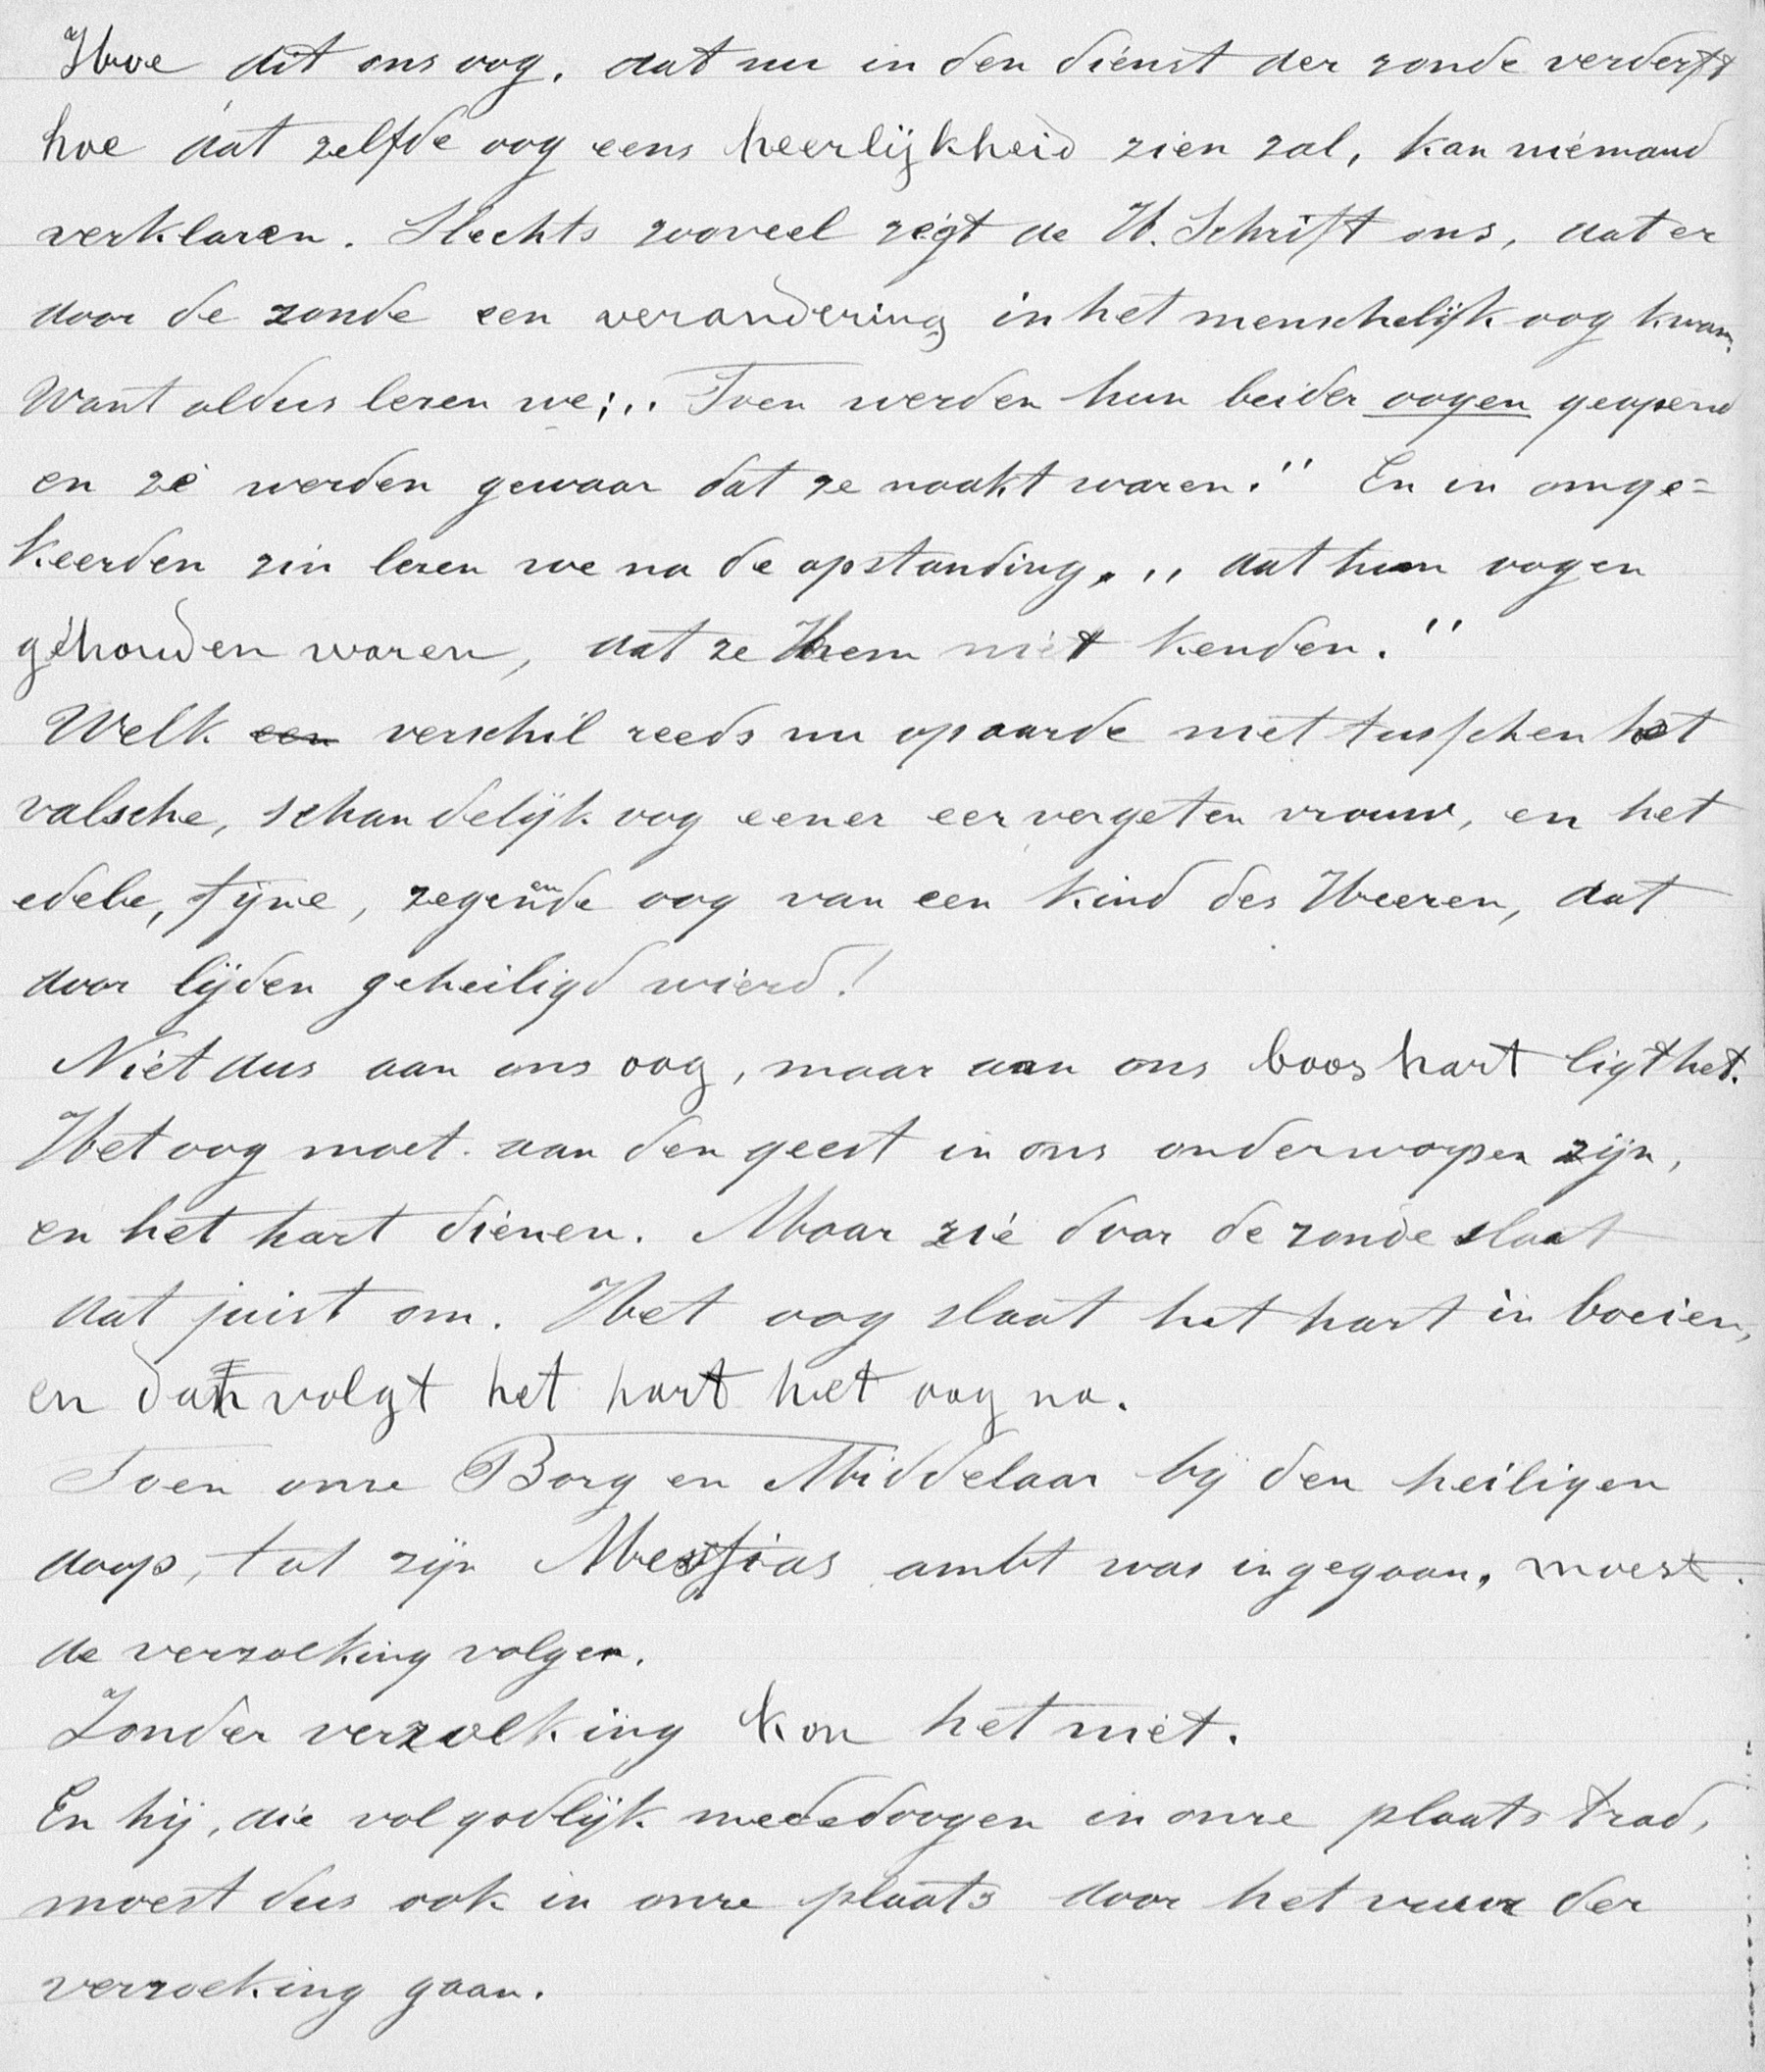 Hoe dit ons oog, dat nu in den dienst der zonde verderft
hoe dat zelfde oog eens heerlijkheid zien zal, kan niemand
verklaren. Slechts zooveel zegt de H. Schrift ons, dat er
door de zonde een verandering in het menschelijk oog kwam.
Want aldus lezen we: „Toen werden hun beider oogen geopend
en ze werden gewaar dat ze naakt waren." En in omge=
keerden zin lezen we na de opstanding, „dat hun oogen
gehouden waren, dat ze Hem niet kenden."
Welk een verschil reeds nu op aarde niet tusschen het
valsche, schandelijk oog eener eervergeten vrouw, en het
edele, fijne, zegenende oog van een kind des Heeren, dat
door lijden geheiligd wierd!
Niet dus aan ons oog, maar aan ons boos hart ligt het.
Het oog moet aan den geest in ons onderworpen zijn,
en het hart dienen. Maar zie door de zonde slaat
dat juist om. Het oog slaat het hart in boeien,
en dan volgt het hart het oog na.
Toen onze Borg en Middelaar bij den heiligen
doop, tot zijn Messias ambt was ingegaan, moest
de verzoeking volgen.
Zonder verzoeking kon het niet.
En hij, die vol godlijk mededoogen in onze plaats trad,
moest dus ook in onze plaats door het vuur der
verzoeking gaan.